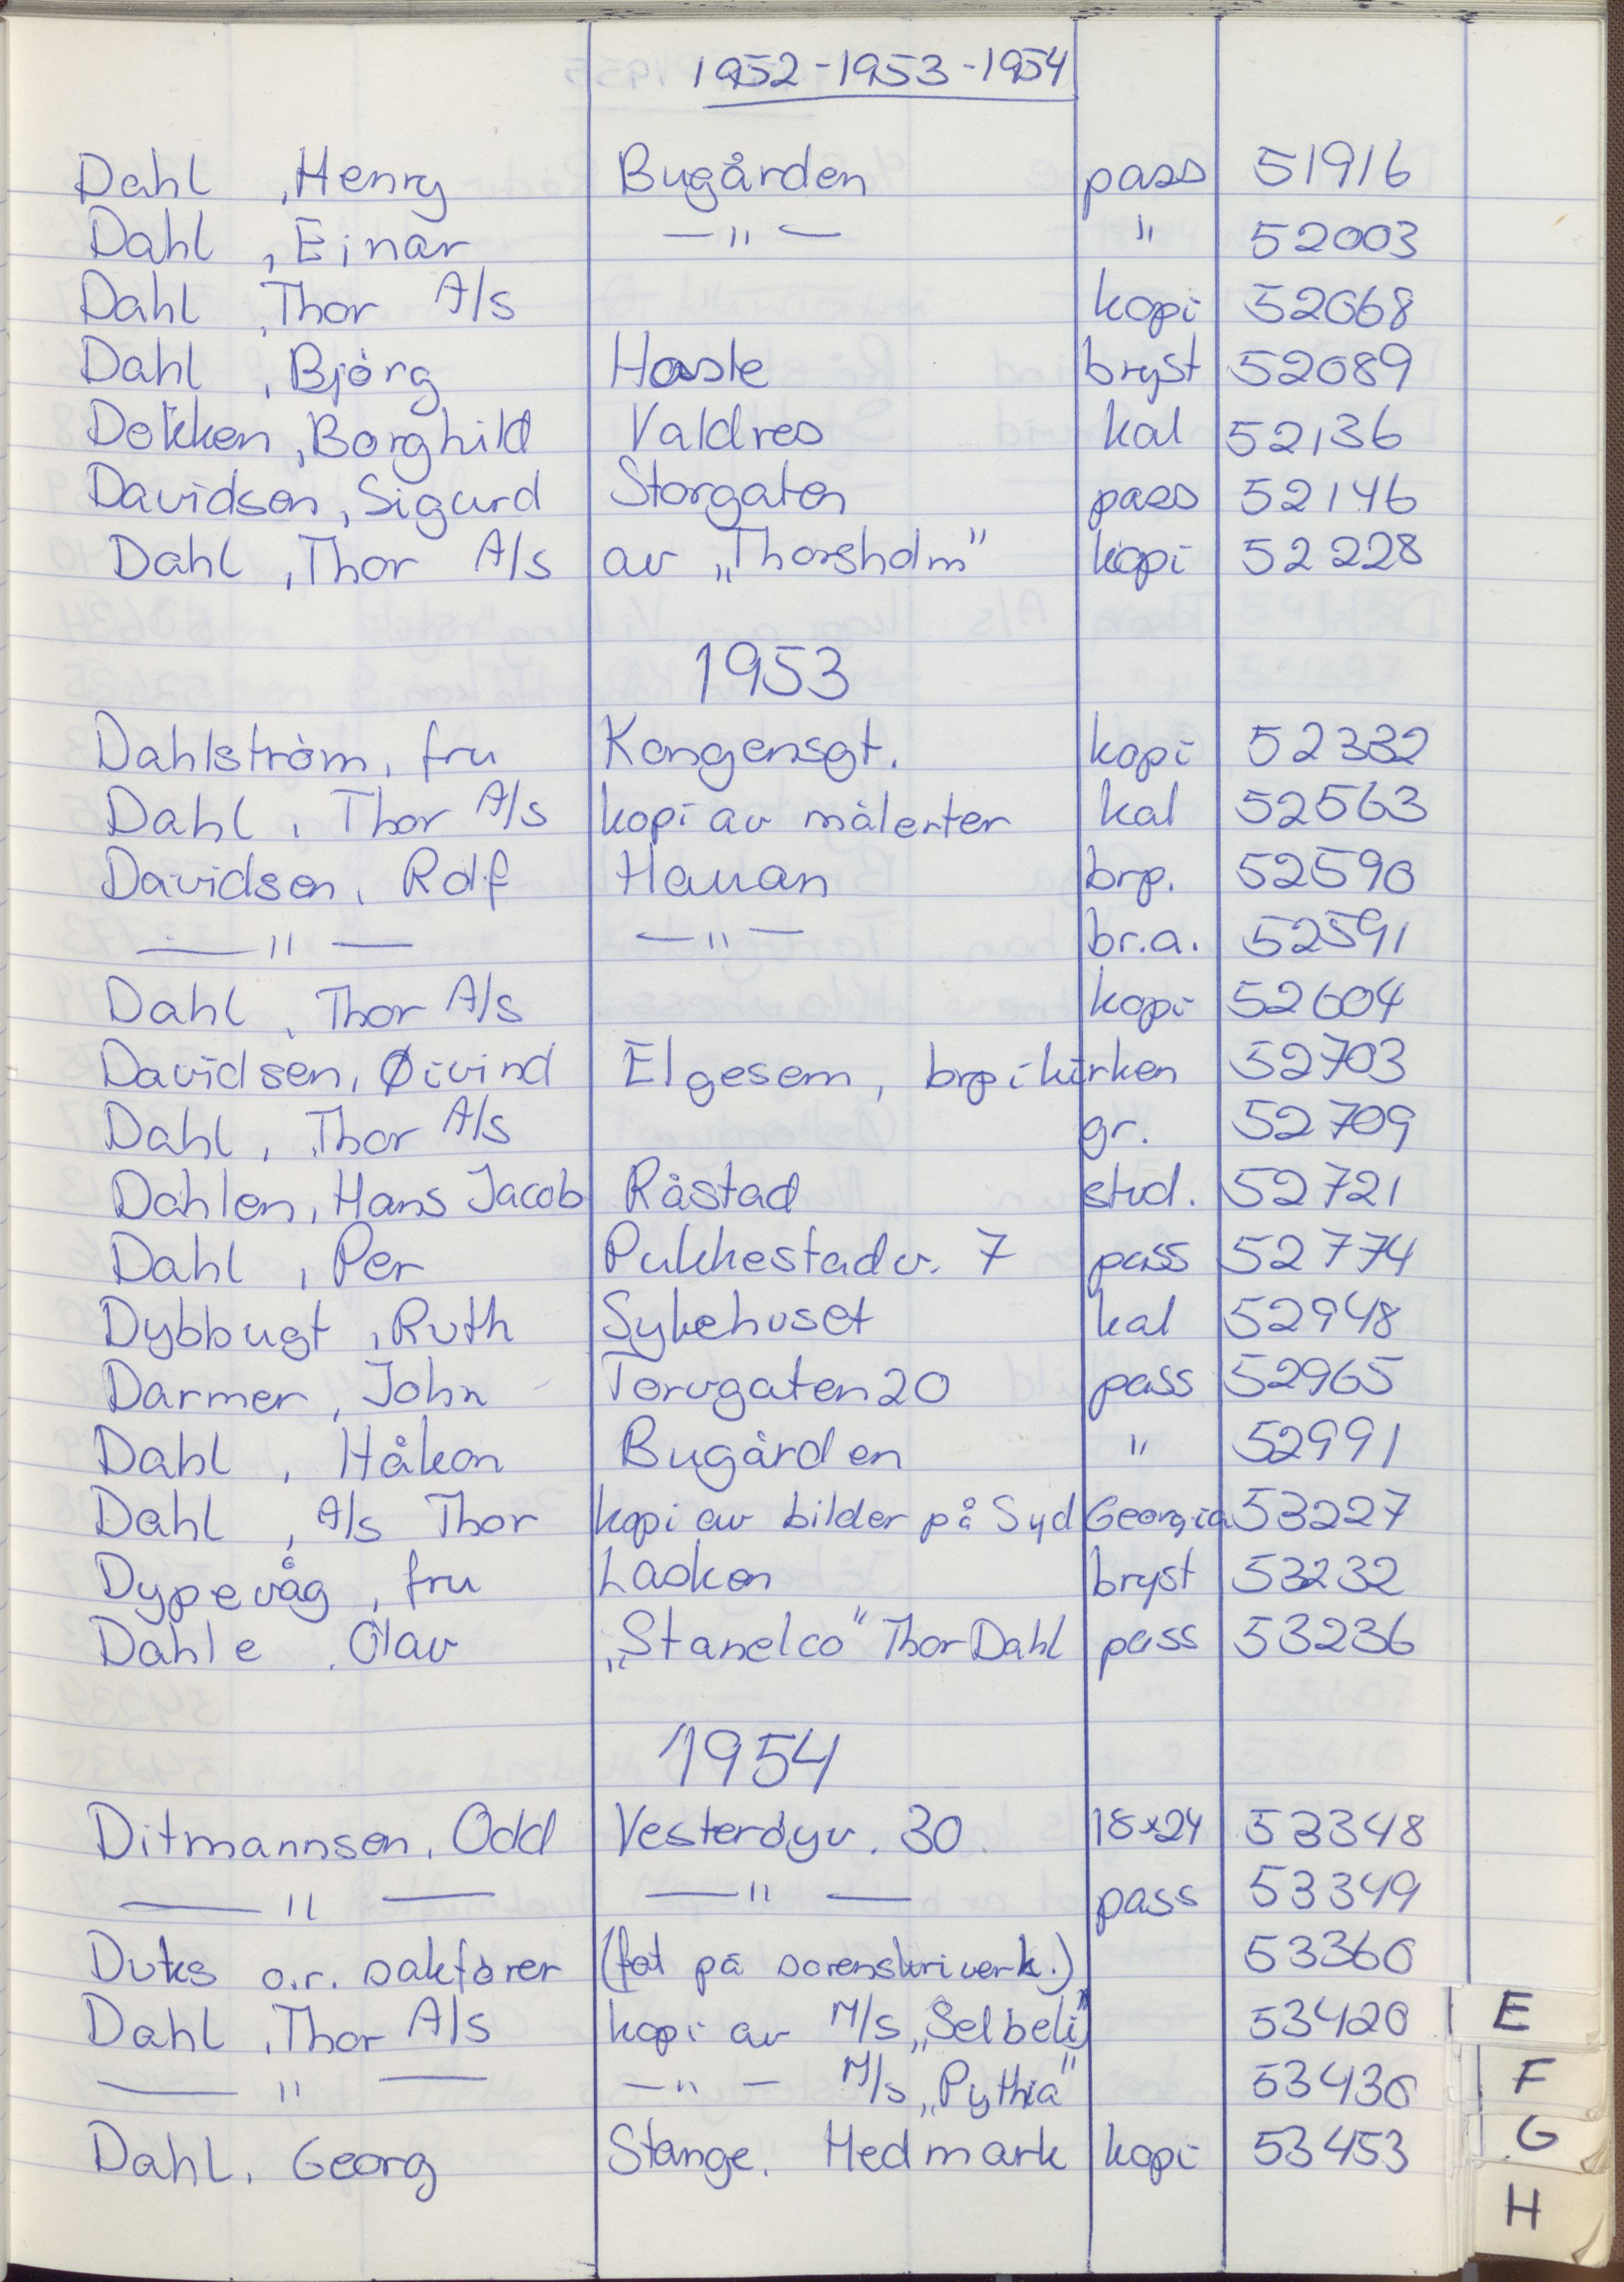 1952-1953-1954
Dahl , Henry Bugården pass 51916
Dahl , Einar —"— " 52003
Dahl , Thor A/s kopi 52068
Dahl , Bjørg Hasle bryst 52089
Dokken , Borghild Valdres kal 52136
Davidsen , Sigurd Storgaten pass 52146
Dahl , Thor A/s av „Thorsholm" kopi 52228
1953
Dahlstrøm , fru Kongensgt. kopi 52332
Dahl , Thor A/s kopi av målerier kal 52563
Davidsen , Rolf Hauan brp. 52590
—"— —"— br.a. 52591
Dahl , Thor A/s kopi 52604
Davidsen , Øivind Elgesem , brp i kirken 52703
Dahl , Thor A/s gr. 52709
Dahlen , Hans Jacob Råstad stud. 52721
Dahl , Per Pukkestadv. 7 pass 52774
Dybbugt , Ruth Sykehuset kal 52948
Darmer , John Torvgaten 20 pass 52965
Dahl , Håkon Bugården " 52991
Dahl , A/s Thor kopi av bilder på Syd Georgia 53227
Dypevåg , fru Lasken bryst 53232
Dahle , Olav „Stanelco" Thor Dahl pass 53236
1954
Ditmannsen , Odd Vesterøyv. 30 18x24 53348
—"— —"— pass 53349
Duks o.r. sakfører (fot på sorenskriverk.) 53360
Dahl , Thor A/s kopi av M/s „Selbeli" 53420
—"— —"— M/s „Pythia" 53430
Dahl , Georg Stange. Hedmark kopi 53453
E
F
G
H